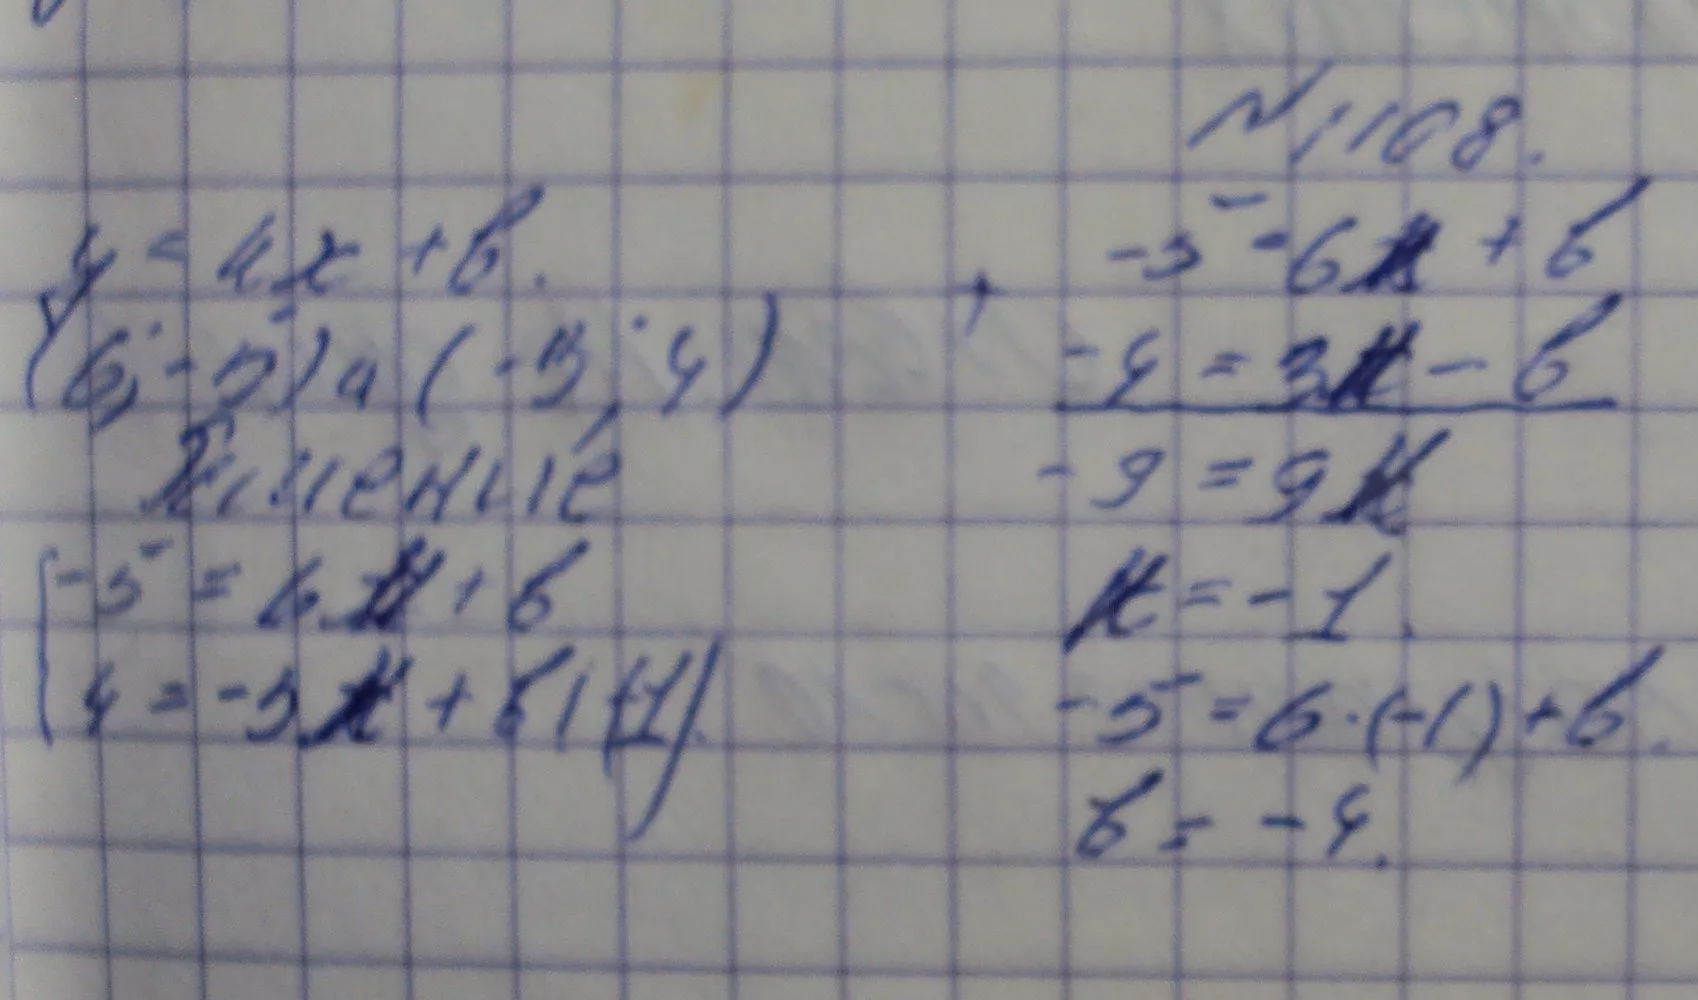 N 1108.
y = kx + b.
(6; -5) и (-3; 4)
Решение
-5 = 6k + b
4 = -3k + b | (-1)
+
-5 = 6k + b
-4 = 3k - b
-9 = 9k
k = -1.
-5 = 6·(-1) + b.
b = -4.